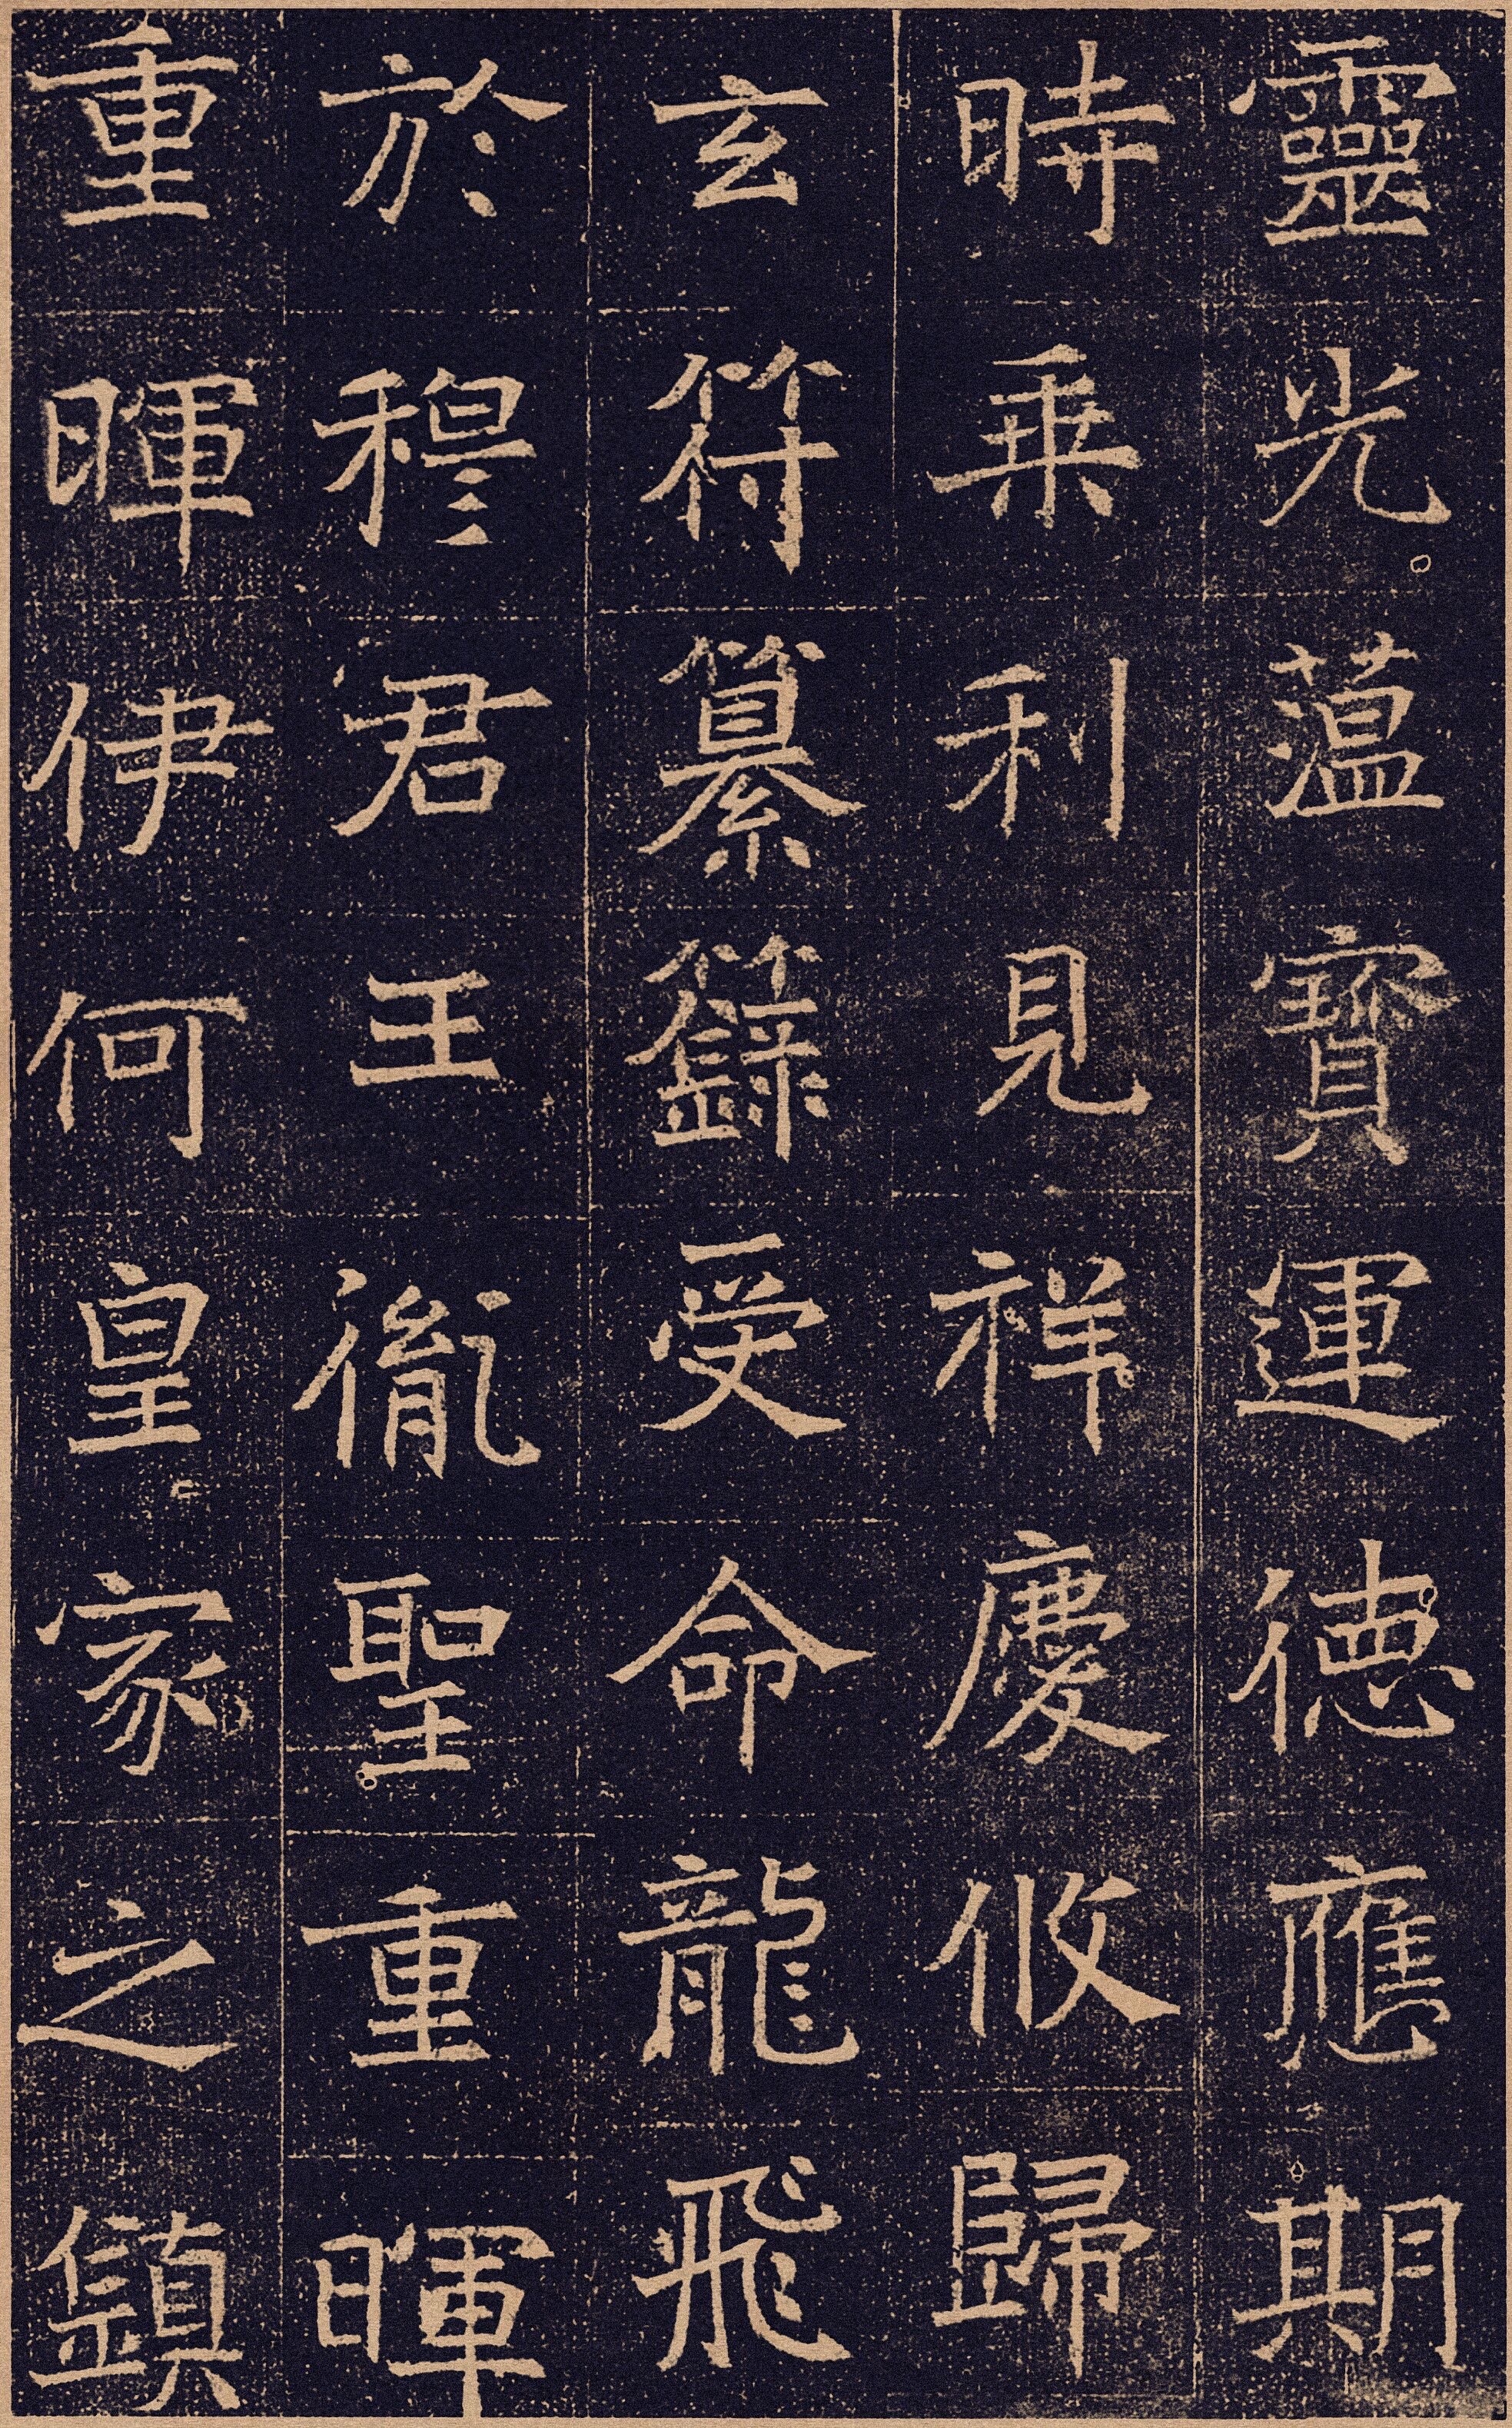 靈光蕰寶運德應期
時乗利見祥慶攸歸
玄符纂籙受命龍飛
於穆君王胤聖重暉
重暉伊何皇家之鎮